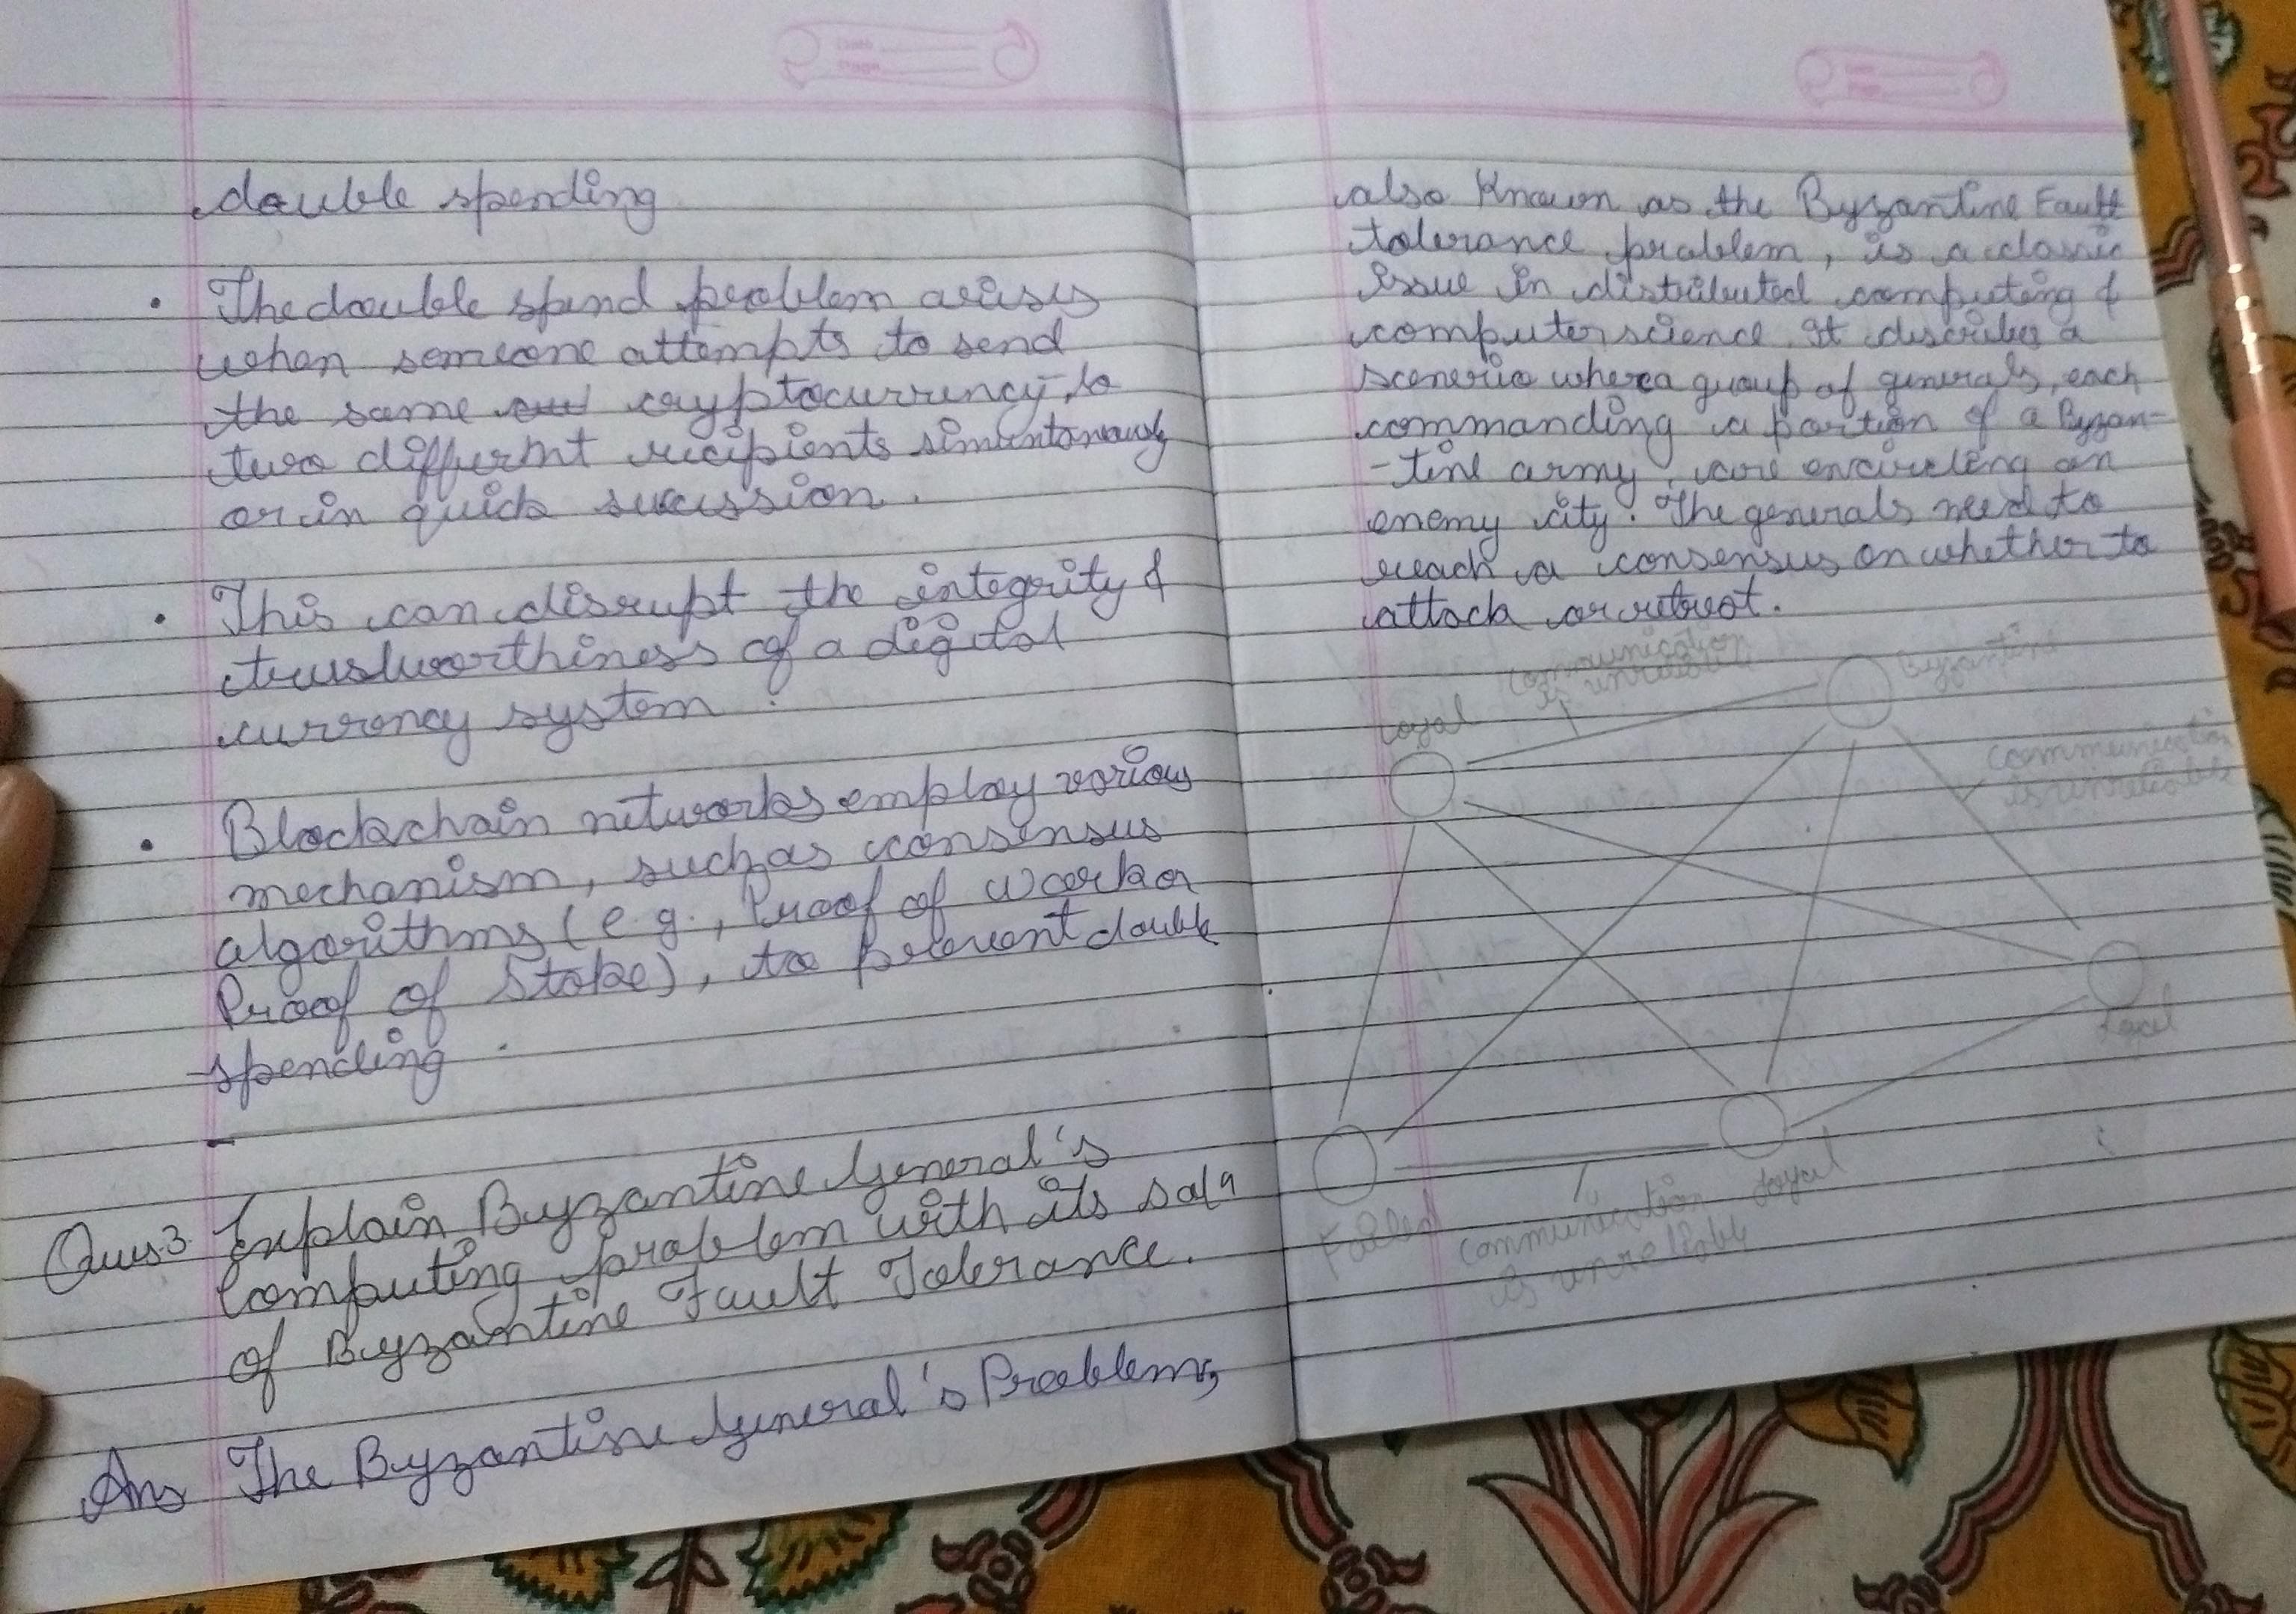 double spending
• The double spend problem arises
when someone attempts to send
the same cryptocurrency to
two different recipients simuntaneously
or in quick sucession.
• This can disrupt the integrity &
trustworthiness of a digital
currency system.
• Blockchain networks employ various
mechanism, such as consensus
algorithms (e.g., Proof of Work or
Proof of Stake), to prevent double
spending.
Ques3. Explain Byzantine General's
Computing problem with its sol^n
of Byzantine Fault Tolerance.
Ans The Byzantine General's Problem,
also Known as the Byzantine Fault
tolerance problem, is a classic
issue in distributed computing &
computer science. It describes a
scenerio where a group of generals, each
commanding a portion of a Byzan-
-tine army, are encircling an
enemy city. The generals need to
reach a consensus on whether to
attack or retreat.
Communication
is unreliable
Byzantine
Loyal
Communication
is unreliable
Loyal
Loyal
Communication
is unreliable